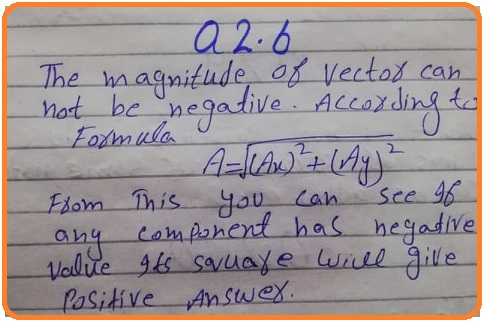 Q 2.6
The magnitude of vector can
not be negative. According to
Formula
A=√(Ax)²+(Ay)²
From This you can see If
any component has negative
value Its square will give
Positive Answer.